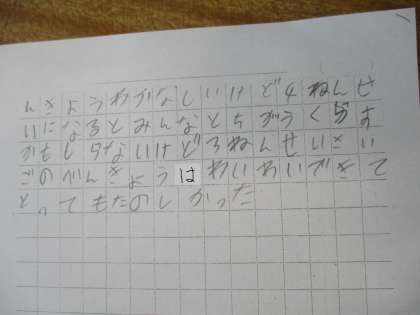 んきようわかなしいけど4ねんせ
いになるとみんなとちがうくらす
かもしらないけど3ねんせいさい
ごのべんきようはわいわいできて
とってもたのしかった